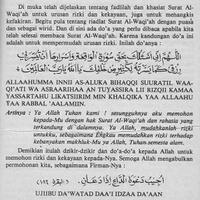 Di muka telah dijelaskan tentang fadlilah dan khasiat Surat Al-
Waqi'ah untuk urusan rizki dan kekayaan, juga untuk menangkis
kefakiran. Begitu pula tentang riadlat Surat Al-Waqi'ah dengan puasa
dan sebagai wirid. Dan di sini ada do'a yang perlu dibaca apabila kita
telah selesai membaca Surat Al-Waqi'ah. Karena kandungan do'a ini
adalah untuk mempermudah urusan rizki. Inilah do'anya :
ALLAAHUMMA INNII AS-ALUKA BIHAQQI SUURATIL WAA-
QI'ATI WA ASRAARIHAA AN TUYASSIRA LII RIZQII KAMAA
YASSARTAHU LIKATSIIRIM MIN KHALQIKA YAA ALLAAHU
YAA RABBAL 'AALAMIIN.
Artinya : Ya Allah Tuhan kami ! sesungguhnya aku memohon
kepada-Mu dengan hak Surat Al-Waqi'ah dan rahasia yang
terkandung di dalamnya. Ya Allah, mudahkanlah rizki
untukku, sebagaimana Engkau memudahkan rizki terhadap
kebanyakan makhluk-Mu ya Allah, Tuhan semesta alam.
Demikian itulah dzikir-dzikir dan do'a-do'a kepada Allah untuk
memohon rizki dan kekayaan kepada-Nya. Semoga Allah mengabulkan
permohonan kita, sebagaimana Firman-Nya :
UJIIBU DA'WATAD DAA'I IDZAA DA'AAN